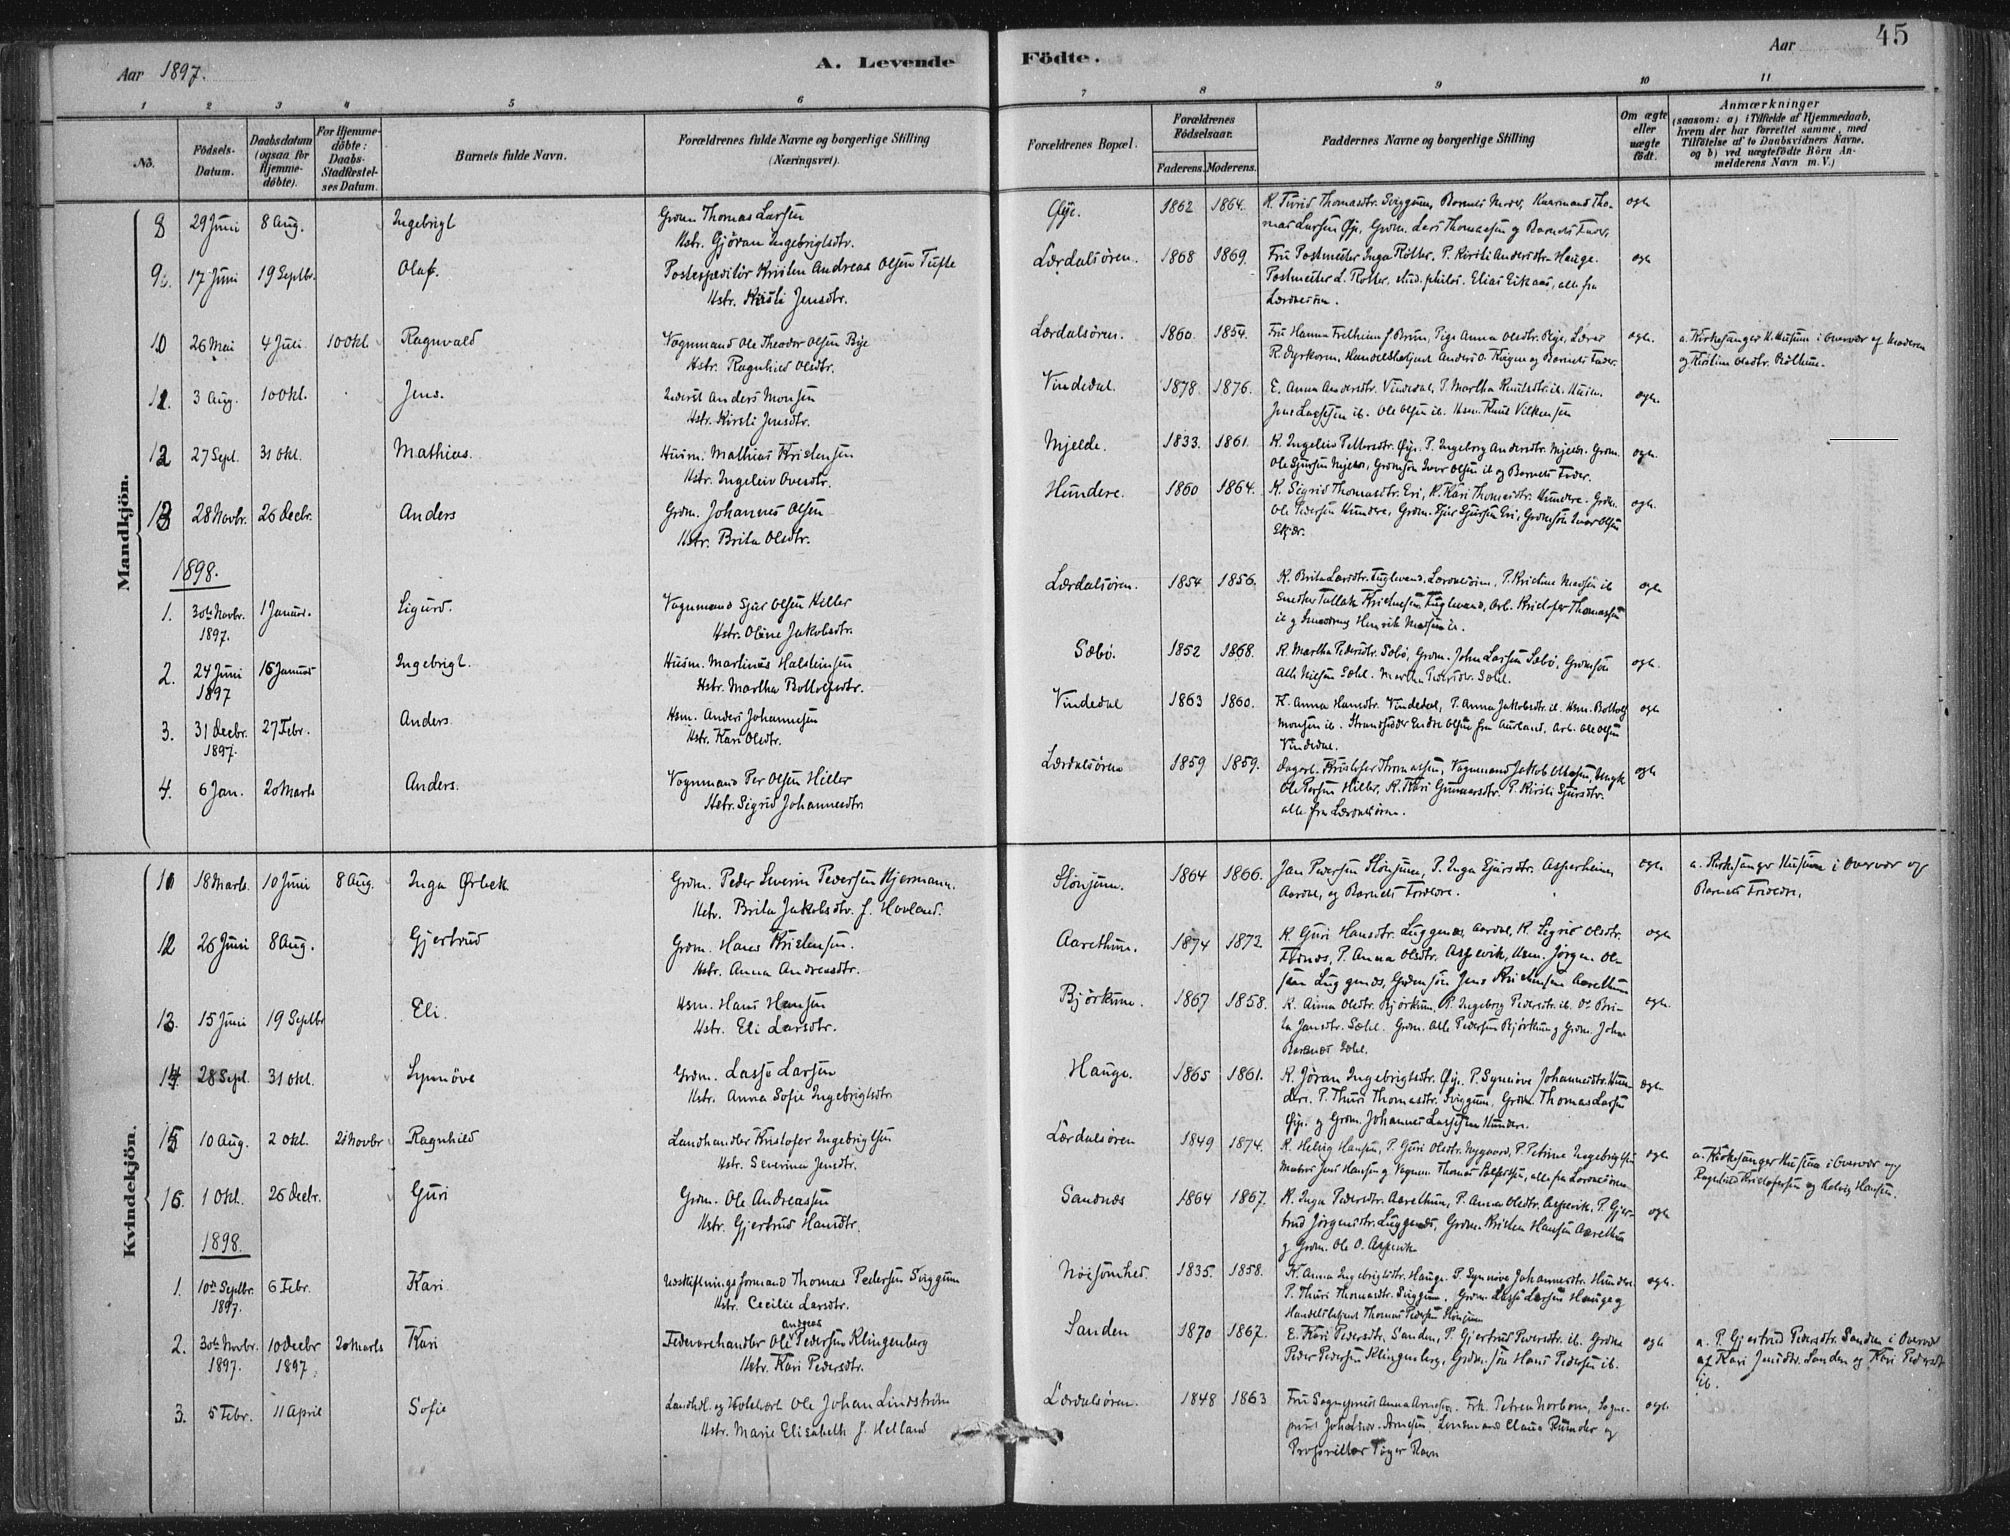 45
Aar 1897.
A. Levende Födte.
Aar
1 2 3 4 5 6 7 8 9 10 11
No.
Födsels-Datum.
Daabsdatum (ogsaa for Hjemme-döbte).
For Hjemme-döbte: Daabs-Stadfæstel-ses Datum.
Barnets fulde Navn.
Forældrenes fulde Navne og borgerlige Stilling (Næringsvei).
Forældrenes Bopæl.
Forældrenes Födselsaar.
Faderens. Moderens.
Faddernes Navne og borgerlige Stilling
Om ægte eller uægte födt.
Anmærkninger
(saasom: a) i Tilfælde af Hjemmedaab, hvem der har forrettet samme, med Tilföielse af to Daabsvidners Navne, og b) ved uægtefödte Börn An-melderens Navn m. V.)
Mandkjön.
8 29 Juni 8 Aug. Ingebrigt
Grdm. Thomas Larsen
Hstr. Gjöran Ingebrigtsdtr.
Øije. 1862 1864.
K. Turid Thomasdtr. Sviggum, Barnets Moder,
Larsen Øije, Grdm. Lars Thomassen og Barnets Fader.
ægte
9. 17 Juni 19 Septbr. Olaf.
Postexpeditör Kristen Andreas Olsen Tufte
Hstr. Kristi Jensdtr.
Lærdalsören. 1868 1869.
Fru Postmester Inga Rötter. P. Kirsti Andersdtr. Hauge.
Postmester L. Rötter, stud. philos. Elias Eikaas, alle fra
Lærdalsören.
ægte
10 26 Mai 4 Juli 10 Okt. Ragnvald
Vognmand Ole Theodor Olsen Bije
Hstr. Ragnhild Olsdtr.
Lærdalsören. 1860. 1854.
Fru Hanna Fretheim f. Bruun, Pige Anna Olsdtr. Bije, Lærer
R. Dyrkorn, Handelsbetjent Anders O. og Barnets Fader.
ægte.
a. Kirkesanger H. Husum i Overvær af Moderen
og Kirstine Olsdtr. Röthum.
11. 3 Aug. 10 Okt. Jens.
Inderst Anders Monsen
Hstr. Kirsti Jensdtr.
Vindedal. 1878. 1876.
E. Anna Andersdtr. Vindedal, P. Martha Knutsdtr. ib. Husm.
Jens Lassesen ib. Ole Olsen ib. Hsm. Knut Vilkensen
ægte.
12 27 Sept. 31 Okt. Mathias.
Husm. Mathias Kristensen
Hstr. Ingeleiv Oversdtr.
Mjelde. 1833. 1861.
K. Ingeleiv Pettersdtr. Øije. P. Ingeborg Andersdtr. Mjelde. Grdm.
Ole Sjursen Mjelde, Grdmsön Iver Olsen ib. og Barnets Fader.
ægte.
13 28 Novbr. 26 Decbr. Anders
Grdm. Johannes Olsen
Hstr. Brita Olsdtr.
Hundere. 1860 1864.
K. Sigrid Thomasdtr. Eri, K. Kari Thomasdtr. Hundere. Grdm.
Ole Pedersen Hundere, Grdm. Sjur Sjursen Eri, Grdmsön Iver Olsen
ægte.
1898.
1. 30te Novbr. 1897. 1 Januar. Sigurd.
Vognmand Sjur Olsen Hiller
Hstr. Oline Jakobsdtr.
Lærdalsören. 1854 1856.
K. Brita Larsdtr. Fuglevand, Lærdalsören, P. Kristine Madsen ib.
Smeder Tollak Kristensen Fuglevand, Arb. Kristofer Thomassen
ib. og Henrik Madsen ib.
ægte
2. 24 Juni 1897 16 Januar Ingebrigt.
Husm. Martinus Halsteinsen
Hstr. Martha Bottolfsdtr.
Sæbö. 1852 1868.
K. Martha Pedersdtr. Sæbö, Grdm. John Larsen Sæbö, Grdmsön
Atle Nilsen Sæhl. Pedersdtr. Sæhl.
ægte.
3. 31 Decbr. 1897. 27 Febr. Anders
Hsm. Anders Johannesen
Hstr. Kari Olsdtr.
Vindedal 1863 1860.
K. Anna Hansdtr. Vindedal, P. Anna Jakobsdtr. ib. Hsm. Bottolf
Monsen ib. Strandsidder Endre Olsen fra Aurland, Arb. Ole Olsen
Vindedal.
ægte
4. 6 Jan. 20 Marts Anders.
Vognmand Per Olsen Hiller
Hstr. Sigrid Johannesdtr.
Lærdalsören 1859 1859.
Dagarb. Kristofer Thomassen, Vognmand Jakob Ottesen, Ungk.
Ole Persen Hiller, K. Kari Gunnarsdtr. P. Kirsti Sjursdtr.
alle fra Lærdalsören.
ægte
Kvindekjön.
11 18 Marts. 10 Juni 8 Aug. Inga Ørbek
Grdm. Peder Severin Pedersen Hjermann.
Hstr. Brita Jakobsdtr. f. Hovland.
Slönjum. 1864 1866.
Jan Pedersen Slönjum, P. Inga Sjursdtr. Asperheim,
Aardal, og Barnets Forældre.
ægte
a. Kirkesanger Husum i Overvær og
Barnets Forældre.
12 26 Juni 8 Aug. Gjertrud
Grdm. Hans Kristensen.
Hstr. Anna Andreasdtr.
Aarethun. 1874 1872
K. Guri Hansdtr. Luggenæs, Aardal, K. Sigrid Olsdtr.
Fodnæs, P. Anna Olsdtr. Aspevik, Hsm. Jörgen Ol-
sen Luggenæs, Grdmsön Jens Kristensen Aarethun
ægte
13. 15 Juni 19 Septbr Eli.
Hsm. Hans Hansen
Hstr. Eli Larsdtr.
Björkum. 1867 1858.
K. Anna Olsdtr. Björkum, P. Ingeborg Pedersdtr. ib. P. Bri-
ta Jansdtr. Sæhl. Grdm. Atle Pedersen Björkum og Grdm. John
Sæhl.
ægte.
14 28 Sept. 31 Okt. Synnöve
Grdm. Lasse Larsen
Hstr. Anna Sofie Ingebrigtsdtr.
Hauge. 1865 1861.
K. Jöran Ingebrigtsdtr. Øije. P. Synnöve Johannesdtr. Hun-
dere. P. Thuri Thomasdtr. Sviggum, Grdm. Thomas Larsen
Øije. og Grdm. Johannes Lassesen Hundere.
ægte.
15 10 Aug. 2 Okt. 21 Novbr Ragnhild
Landhandler Kristofer Ingebrigtsen
Hstr. Severina Jensdtr.
Lærdalsören 1849 1874.
K. Helvig Hansen, P. Guri Olsdtr. Nygaard, P. Petrine Ingebrigtsen
Jens Hansen og Vognm. Thomas, alle fra Lærdalsören
ægte
a. Kirkesanger Husum i Overvær og
Ragnhild Kristofersen og Helvig Hansen.
16. 1 Okt. 26 Decbr. Guri
Grdm. Ole Andreassen
Hstr. Gjertrud Hansdtr.
Sandnæs 1864 1867.
K. Inga Pedersdtr. Aarethun, P. Anna Olsdtr. Aspevik, P. Gjer-
trud Jörgensdtr. Luggenæs, Grdm. Kristen Hansen Aarethun
og Grdm. Ole O. Aspevik
ægte
1898.
1. 10de Septbr. 1897. 6 Febr. Kari
Udskiftningsformand Thomas Pedersen Sviggum
Hstr. Cecilie Larsdtr.
Nöisomhed. 1835. 1858.
K. Anna Ingebrigtsdtr. Hauge. P. Synnöve Johannesdtr. Hundere
P. Thuri Thomasdtr. Sviggum, Grdm. Lasse Larsen Hauge og
Handelsbetjent Thomas Pedersen Slönjum
ægte.
2. 30te Novbr. 1897. 10 Decbr 1897. 20 Marts Kari
Andreas
Fedevarehandler Ole Pedersen Klingenberg
Hstr. Kari Pedersdtr.
Sanden 1870 1867.
E. Kari Pedersdtr. Sanden, P. Gjertrud Pedersdtr. ib. Grdm.
Peder Pedersen Klingenberg, Grdm. Sön Hans Pedersen ib.
ægte
a. P. Gjertrud Pedersdtr. Sanden i Overvær
af Kari Jensdtr. Sanden og Kari Pedersdtr
ib.
3. 5 Febr. 11 April Sofie
Landhdl. og Hotelvært Ole Johan Lindström
Hstr. Marie Elisabeth f. Hetland
Lærdalsören. 1848 1863
Fru Sogneprest Anna Arnesen. Frk. Petrea Norbom, Sogne-
prest Joh. Arnesen, Lensmand Claus Rumder og
Prokurator Töger Ravn
ægte